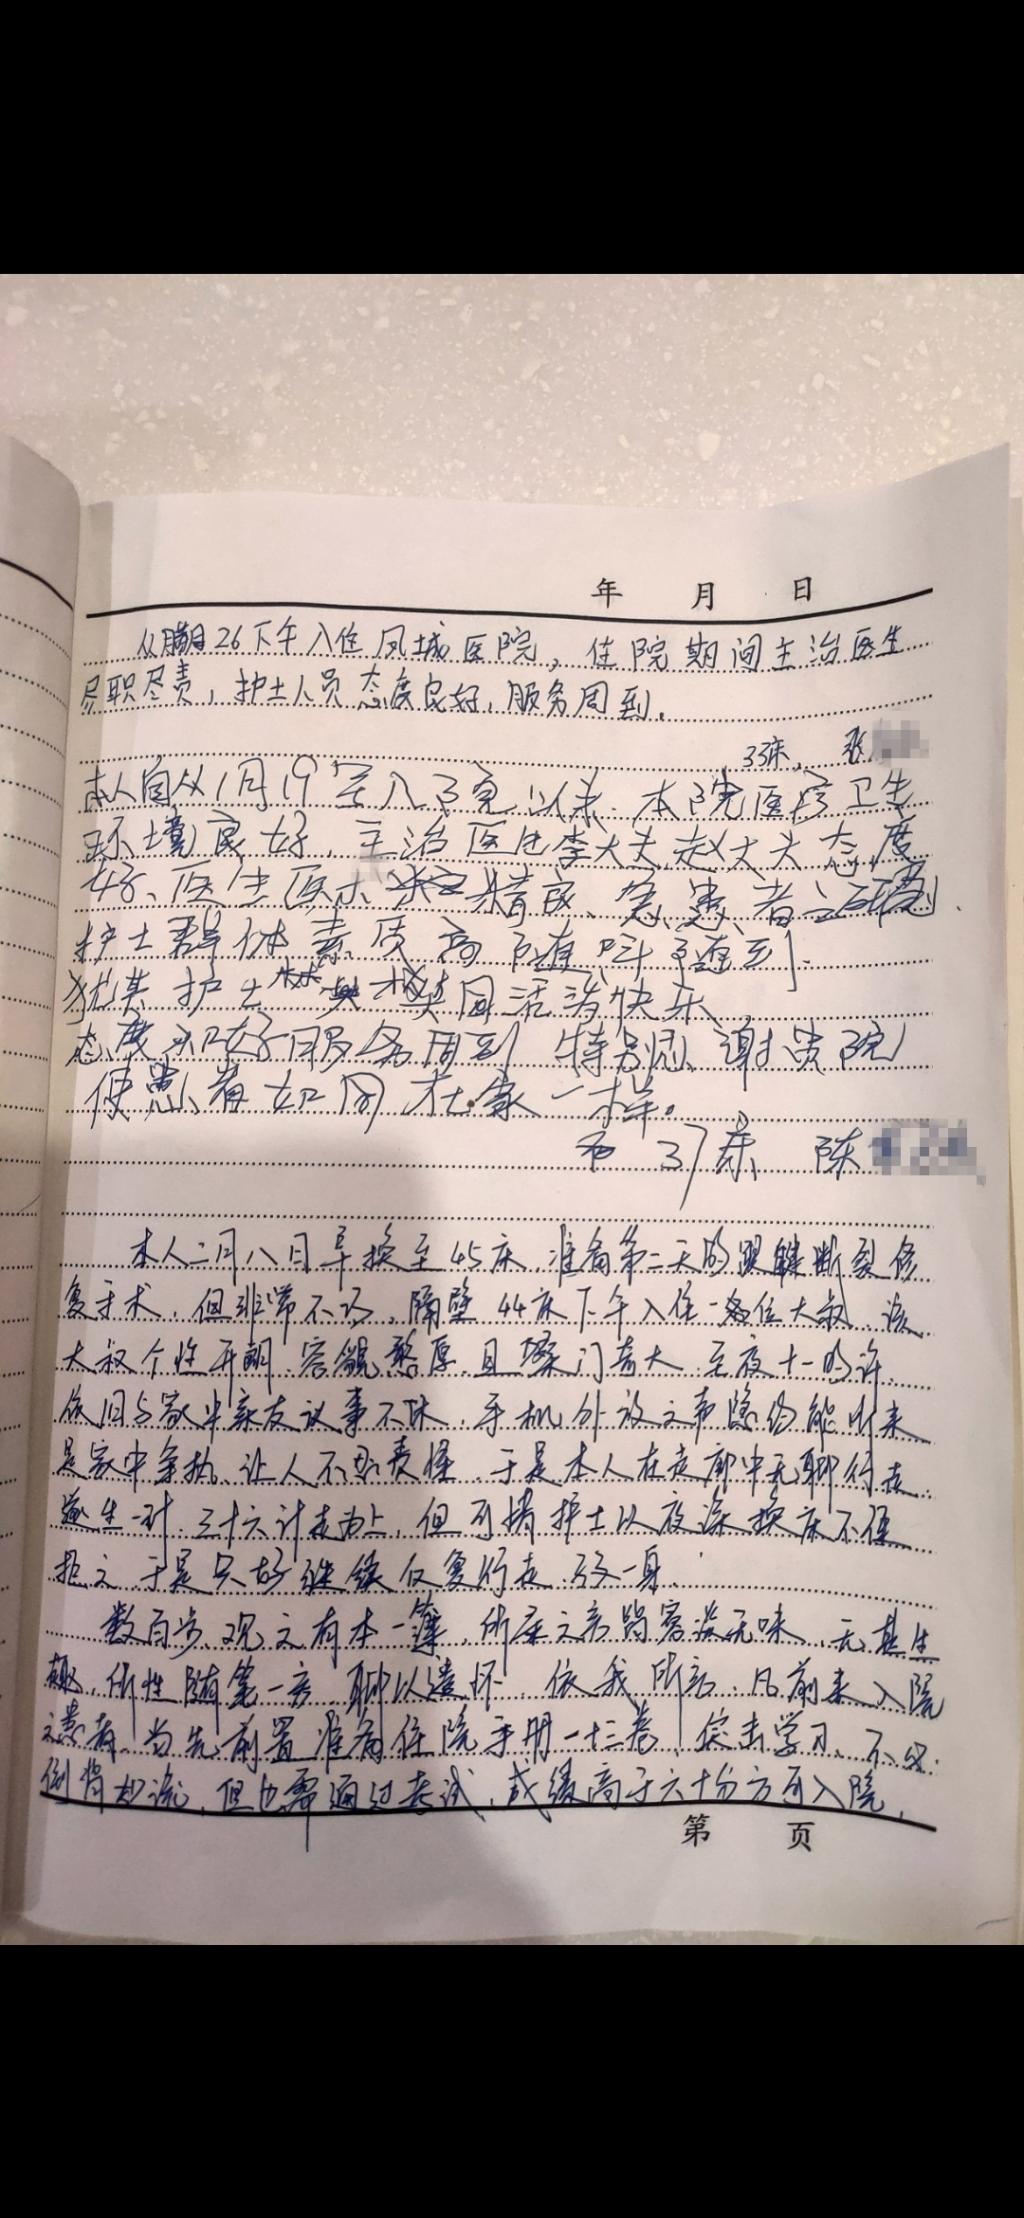 年 月 日
从腊月26下午入住凤城医院，住院期间主治医生
尽职尽责，护士人员态度良好，服务周到。
33床 张
本人自从1月19号入院以来、本院医疗卫生
环境良好，主治医生李大夫赵大夫态度
好、医生医术精良、急患者之所急
护士群体素质高随叫随到、
尤其护士 活泼快乐
态度和好服务周到 特别感谢贵院
使患者如同在家一样。
37床 陈
本人二月八日早换至45床，准备第二天的跟腱断裂修
复手术，但非常不巧，隔壁44床下午入住一位大叔，该
大叔个性开朗，容貌憨厚，且嗓门奇大，至夜十一时许，
依旧与家中亲友议事不休，手机外放之声隐约能听来
是家中争执，让人不忍责怪，于是本人在走廊中无聊行走，
遂生一计，三十六计走为上，但可惜护士以夜深换床不便
拒之，于是只好继续反复行走，
数百步，观之有本一簿，所言之言皆寡淡无味，无甚生
趣，依性随笔一言，聊以遣怀，依我所言，凡前来入院
之患者，当先前置准备住院手册一十三卷，突击学习，不必
倒背如流，但也需通过考试，成绩高于六十分方可入院，
第 页